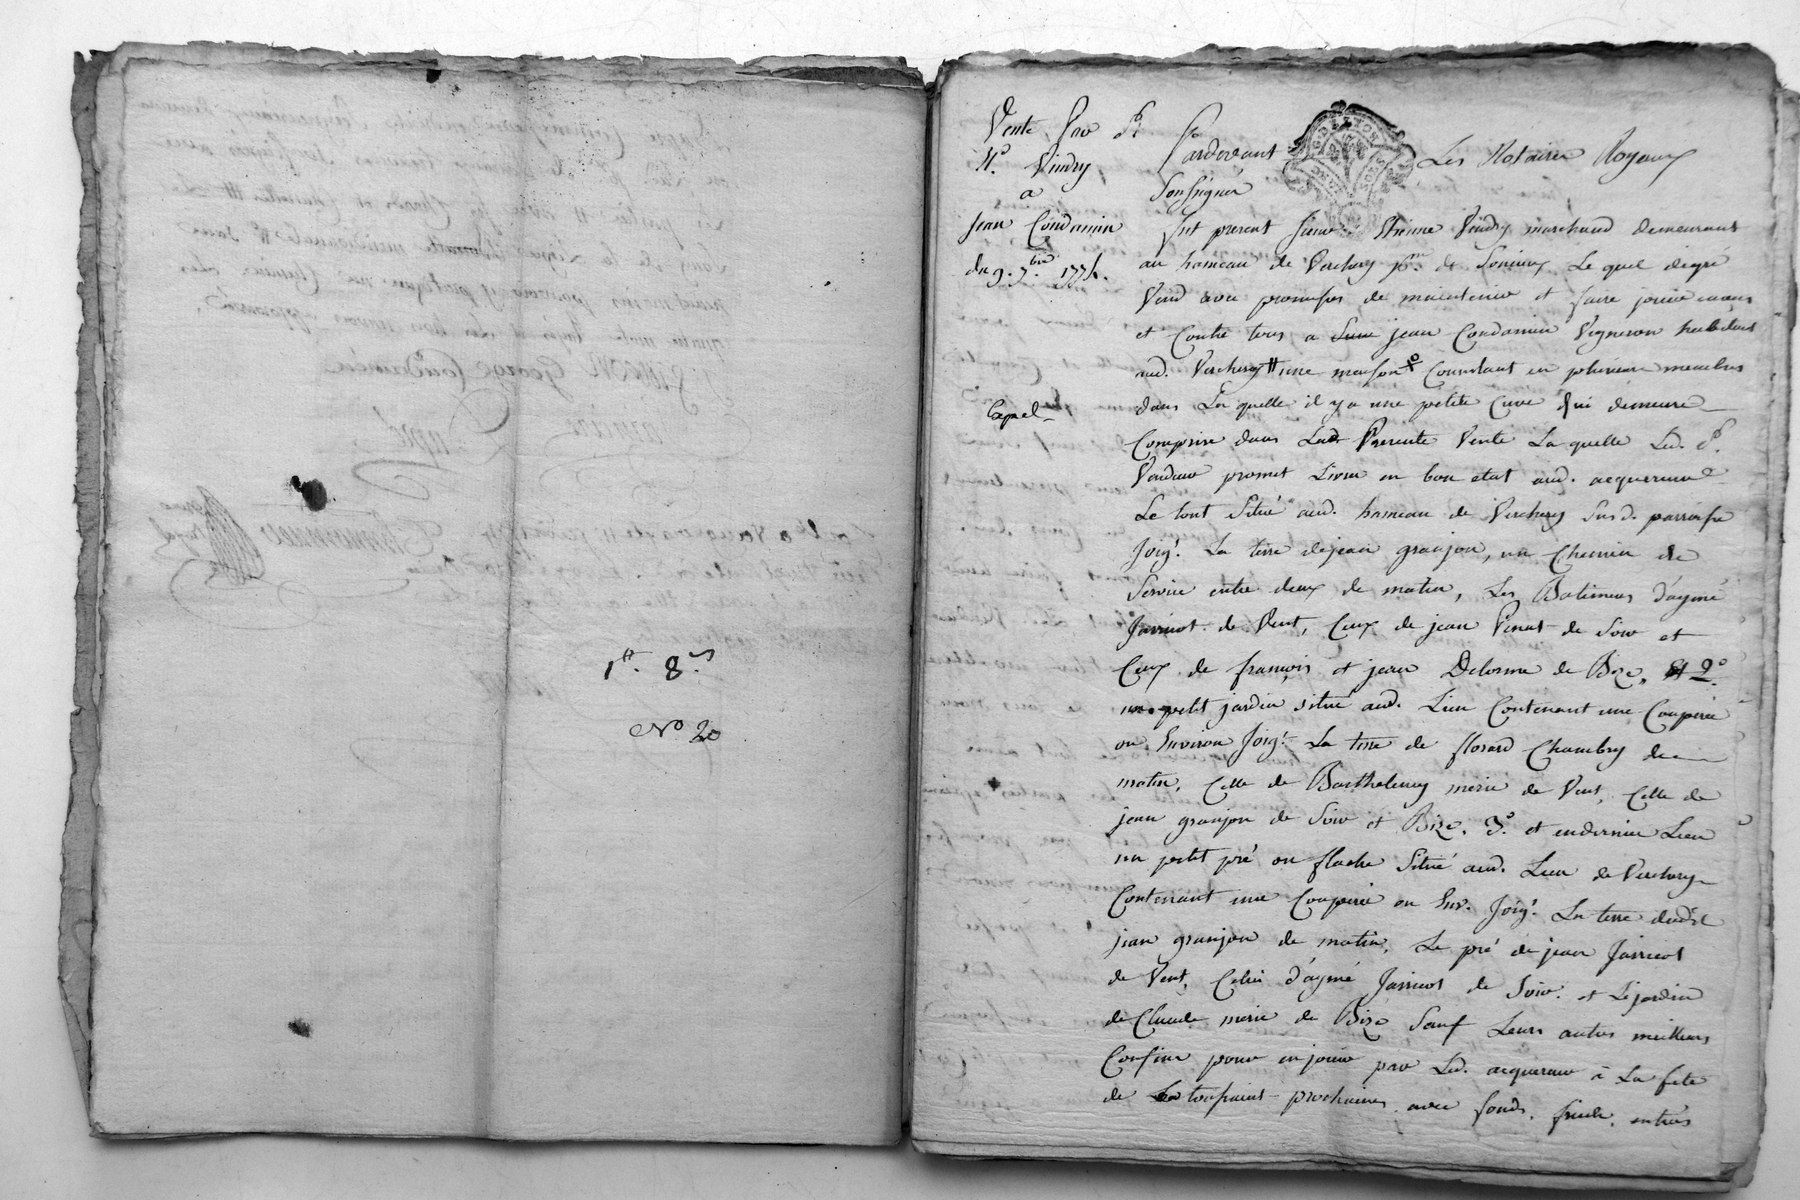 1tt. 8s
No 20
Vente par Sr.
Vindry
a
Jean Condamin
du 9. 7bre 1774.
Expel
Pardevant Les Notaires Royaux
Soussignés
fut present sieur Etienne Vindry marchand demeurant
au hameau de Verchery psse. de Soucieux Le quel degré
Vend avec promesses de maintenir et faire jouir envers
et Contre tous a jean Condamin Vigneron habitant
aud. Verchery une maison Consistant en plusieurs membres
dans La quelle il y a une petite Cuve qui demeure
Comprise dans Lad. Presente Vente La quelle Led. Sr.
Vendeur promet Livrer en bon etat aud. acquereur
Le tout Situé aud. hameau de Verchery susd. parroisse
Joigt. La terre de jean granjon, un Chemin de
Service entre deux de matin, Les Batimens d'aymé
Jarricot de Vent, Ceux de jean de Soir et
Ceux de françois et jean Delorme de Bize, Et 2o.
un petit jardin situé aud. Lieu Contenant une Couperée
ou Environ Joigt. La terre de florard Chambry de
matin, Celle de Barthelemy merie de Vent, Celle de
jean granjon de Soir et Bize. 3o. et en dernier Lieu
un petit pré ou flache Situé aud. Lieu de Verchery
Contenant une Couperée ou Env. Joigt. La terre dudit
jean granjon de matin, Le pré de jean Jarricot
de Vent, Celui d'aymé Jarricot de Soir. et Le jardin
de Claude merie de Bize Sauf Leurs autres meilleurs
Confins pour en jouir par Led. acquereur à La fete
de toussaint prochaines avec fonds, fruits, entrées